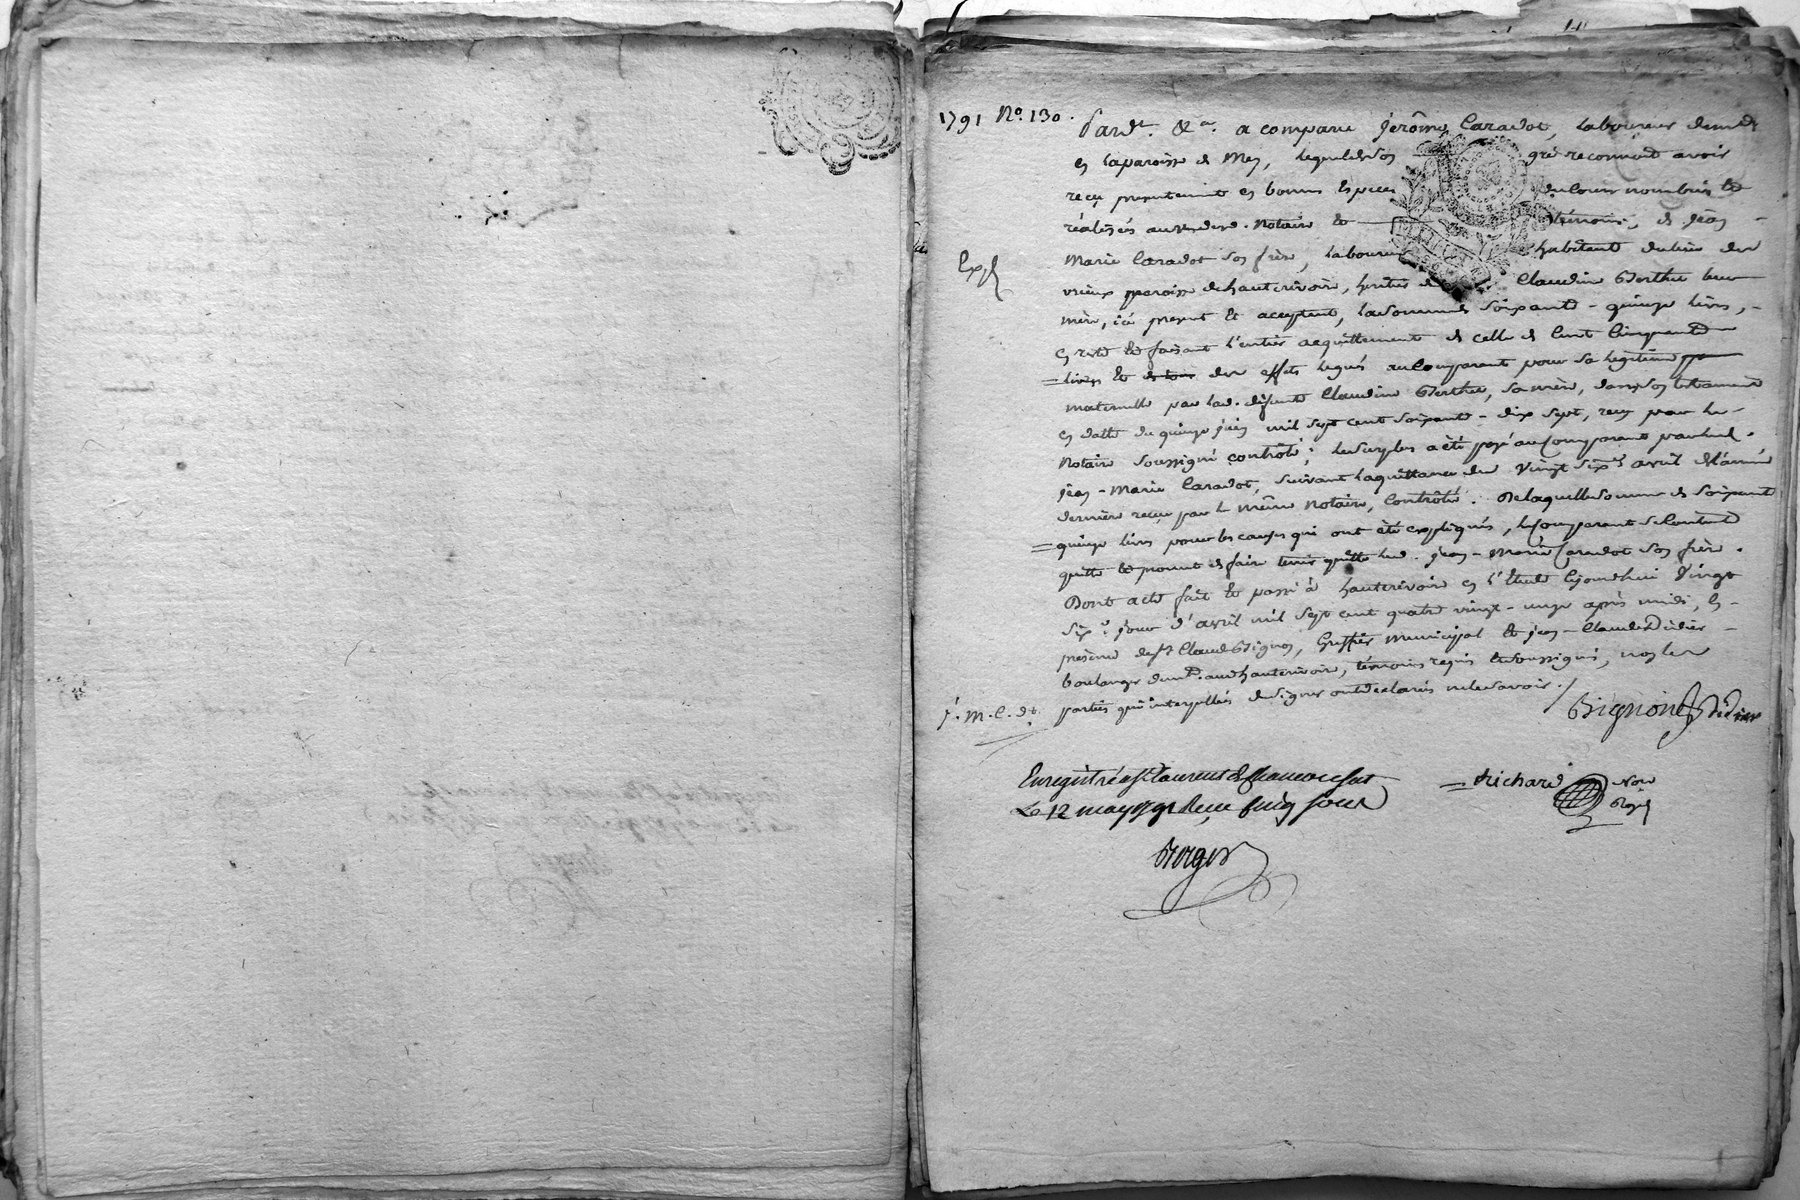 1791 No. 130.
Pardt. &a. a comparu jerôme Caradot, laboureur demt
en laparoisse de Mey, lequel deson gré reconnait avoir
reçu presentement en bonnes Especes ducours nombrés Et
réalisés auvu desd. Notaire Et témoins, de jean
Expé
Marie Caradot son frère, laboureur habitant dulieu de
vrieux paroisse dehauterivoire, heritier de Claudine Berthu leur
mère, ici present Et acceptant, lasomme de soixante - quinze livres,
en reste Et faisant l'entier acquittement de celle de Cent Cinquante
livres Et des effets legués aucomparant pour sa legitime
maternelle par lad. defunte Claudine Berthu, sa mère, dans son testament
en datte du quinze juin mil sept cent soixante - dix sept, reçu par le
Notaire soussigné controlé; lesurplus a été payé aucomparant parled.
jean - Marie Caradot, suivant laquittance du vingt six avril del'année
dernière reçue par le même Notaire, Controlée. Delaquelle somme de soixante
quinze livres pour les causes qui ont été expliqués, lecomparant secontente
quitte Et promet de faire tenir quitte led. jean - Marie Caradot son frère.
Dont acte fait Et passé à hauterivoire en l'Etude Cejourdhui vingt
six.e jour d'avril mil sept cent quatre vingt - onze après midi, En
presence de sr. Claude Bignon, Greffier Municipal Et jean - Claude Didier
boulanger demt. aud hauterivoire, témoins requis Et soussignés, non les
j. m. C. dt.
parties qui interpellées designer ontdeclarés nelesavoir./
Bignon Didier
Enregistré a St laurent de Chamousset
le 12 may 1791 Reçu Cinq sous
Berger
Richard
Nore
Royal